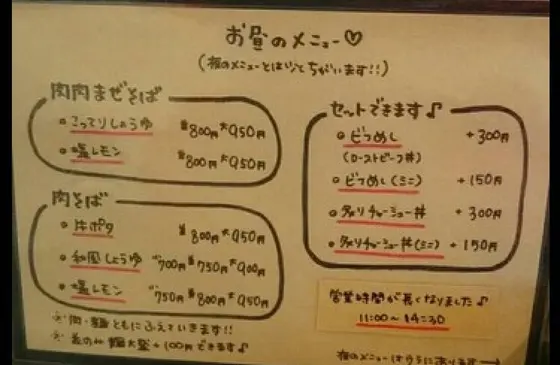 お昼のメニュー♡
(夜のメニューとはべつでちがいます!!)
肉肉まぜそば
・こってりしょうゆ 並800円 大950円
・塩レモン 並800円 大950円
肉そば
・牛ポタ 並800円 大950円
・和風しょうゆ 小700円 並750円 大900円
・塩レモン 小750円 並800円 大950円
※肉・麺ともにふえていきます!!
麺大盛+100円できます♪
セットできます♪
・ビフめし +300円
(ローストビーフ丼)
・ビフめし(ミニ) +150円
・炙りチャーシュー丼 +300円
・炙りチャーシュー丼(ミニ) +150円
営業時間が長くなりました♪
11:00～14:30
夜のメニューはうらにあります→